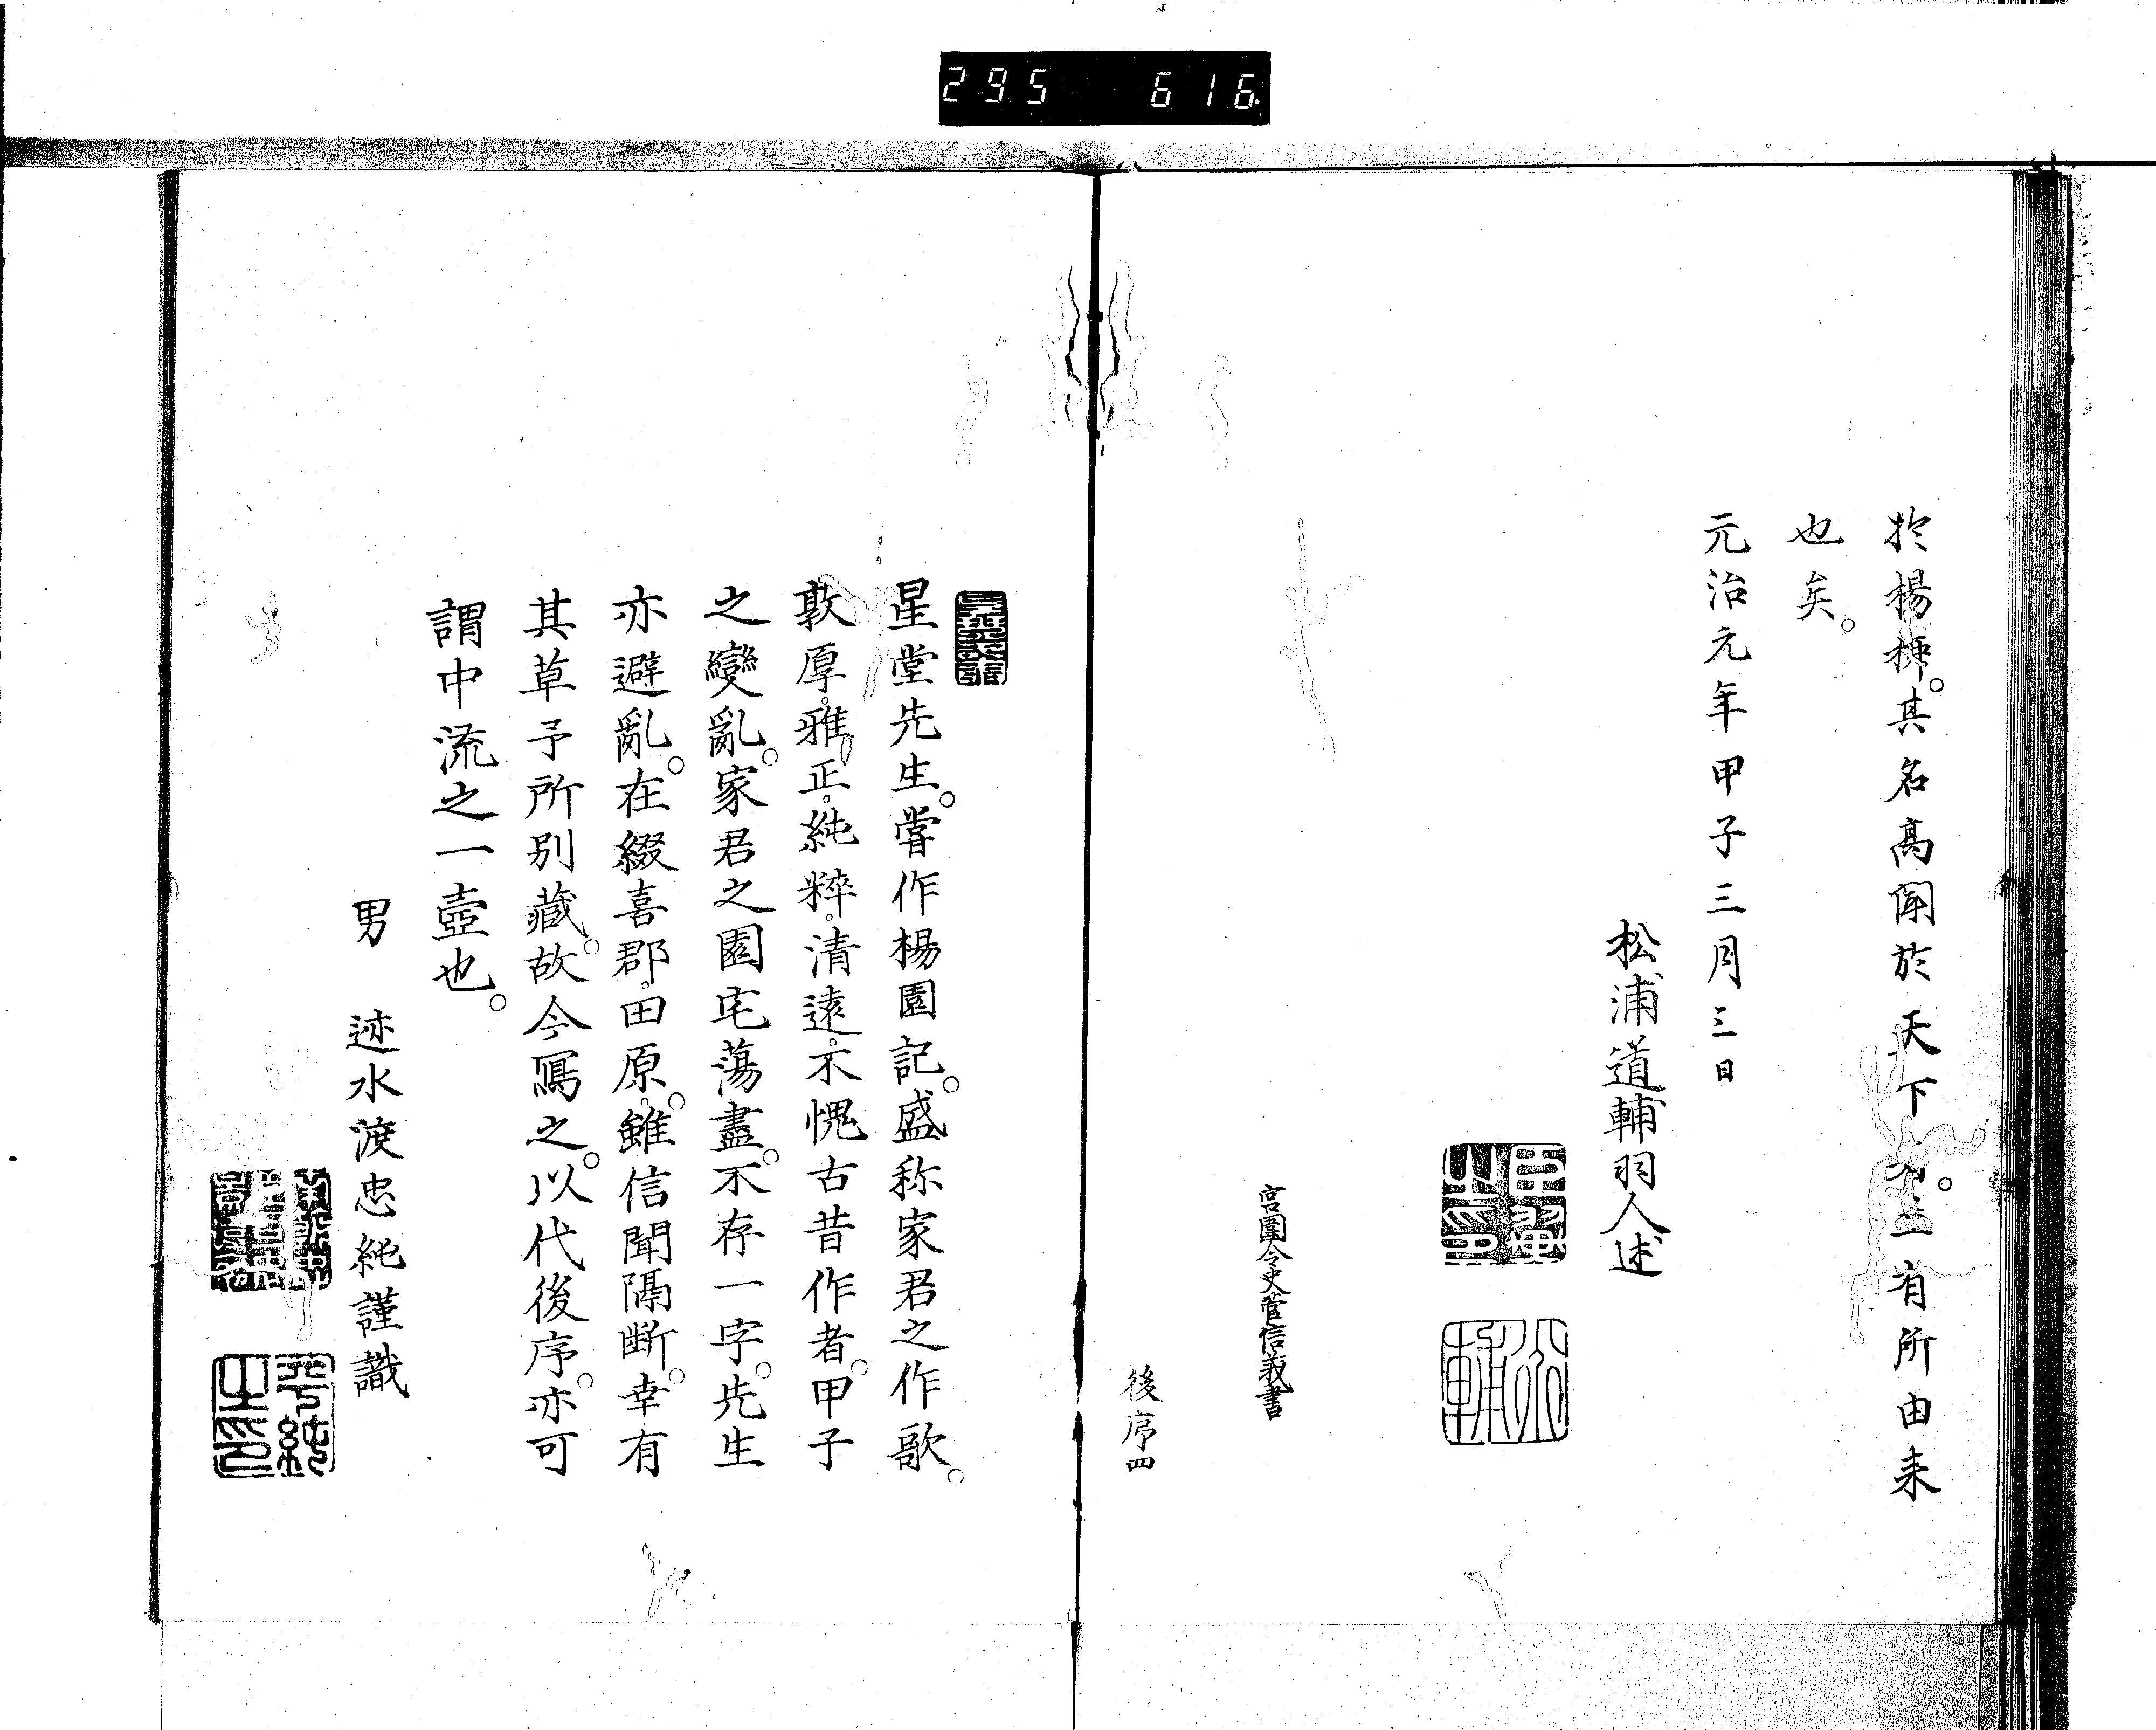 295 616
於楊柳。其名高聞於天下。有所由来
也矣。
元治元年甲子三月三日
松浦道輔羽人述
宮圍令史菅信義書
後序四
星堂先生。嘗作楊園記。盛称家君之作歌。
敦厚。雅正。純粹。清遠。不愧古昔作者。甲子
之變亂。家君之園宅蕩盡。不存一字。先生
亦避亂。在綴喜郡。田原。雖信聞隔断。幸有
其草予所別藏。故今寫之。以代後序。亦可
謂中流之一壺也。
男 迹水渡忠純謹識